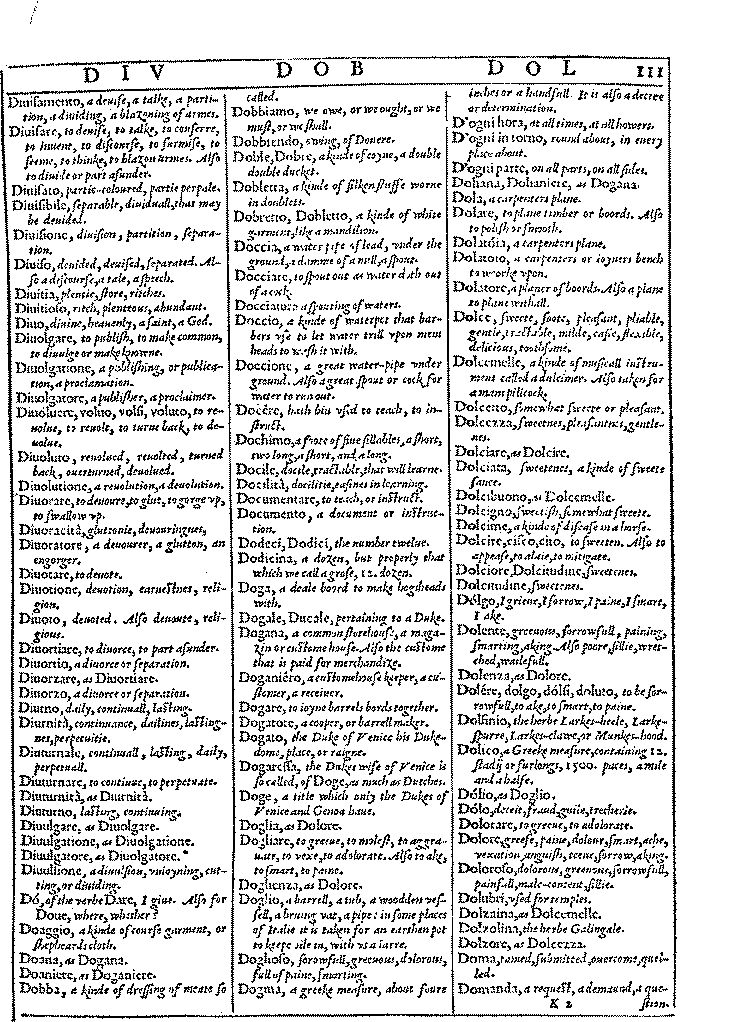 D I V
D O B
D O L
111
Diuisamento, a deuise, a talke, a parti-
tion, a diuiding, a blazoning of armes.
Diuisare, to deuise, to talke, to conferre,
to inuent, to discourse, to surmise, to
seeme, to thinke, to blazon armes. Also
to diuide or part asunder.
Diuisato, partie-coloured, partie perpale.
Diuisibile, separable, diuiduall, that may
be deuided.
Diuisione, diuision, partition, separa-
tion.
Diuiso, deuided, deuised, separated. Al-
so a discourse, a tale, a speech.
Diuitia, plentie, store, riches.
Diuitioso, rich, plenteous, abundant.
Diuo, diuine, heauenly, a saint, a God.
Diuolgare, to publish, to make common,
to diuulge or make knowne.
Diuolgatione, a publishing, or publica-
tion, a proclamation.
Diuolgatore, a publisher, a proclaimer.
Diuoluere, voluo, volsi, voluto, to re-
uolue, to reuolt, to turne back, to de-
uolue.
Diuoluto, reuolued, reuolted, turned
back, ouerturned, deuolued.
Diuolutione, a reuolution, a deuolution.
Diuorare, to deuoure, to glut, to gorge vp,
to swallow vp.
Diuoracità, gluttonie, deuouringues,
Diuoratore, a deuourer, a glutton, an
engorger.
Diuotare, to deuote.
Diuotione, deuotion, earnestnes, reli-
gion.
Diuoto, deuoted. Also deuoute, reli-
gious.
Diuortiare, to diuorce, to part asunder.
Diuortio, a diuorce or separation.
Diuorzare, as Diuortiare.
Diuorzo, a diuorce or separation.
Diurno, daily, continuall, lasting.
Diurnità, continuance, dailines, lasting-
nes, perpetuitie.
Diuturnale, continuall, lasting, daily,
perpetuall.
Diuturnare, to continue, to perpetuate.
Diuturnità, as Diurnità.
Diuturno, lasting, continuing.
Diuulgare, as Diuolgare.
Diuulgatione, as Diuolgatione.
Diuulgatore, as Diuolgatore.
Diuulsione, a diuulsion, vnioyning, cut-
ting, or diuiding.
Dó, of the verbe Dare, I giue. Also for
Doue, where, whether?
Doaggio, a kinde of course garment, or
shepheards cloth.
Doana, as Dogana.
Doaniere, as Doganiere.
Dobba, a kinde of dressing of meate so
called.
Dobbiamo, we owe, or we ought, or we
must, or we shall.
Dobbiendo, owing, of Douere.
Doble, Dobre, a kinde of coyne, a double
double ducket.
Dobletta, a kinde of silken stuffe worne
in doublets.
Dobretto, Dobletto, a kinde of white
garment, like a mandilion.
Doccia, a water pipe of lead, vnder the
ground, a damme of a mill, a spout.
Docciare, to spout out as water doth out
of a cock.
Docciatura a spouting of waters.
Doccio, a kinde of waterpot that bar-
bers vse to let water trill vpon mens
heads to wash it with.
Doccione, a great water-pipe vnder
ground. Also a great spout or cock for
water to run out.
Docére, hath bin vsed to teach, to in-
struct.
Dochimo, a foote of fiue sillables, a short,
two long, a short, and a long.
Docile, docile, tractable, that will learne.
Docilità, docilitie, easines in learning.
Documentare, to teach, or instruct.
Documento, a document or instruc-
tion.
Dodeci, Dodici, the number twelue.
Dodicina, a dozen, but properly that
which we call a grose, 12. dozen.
Doga, a deale bord to make hogsheads
with.
Dogale, Ducale, pertaining to a Duke.
Dogana, a common storehouse, a maga-
zin or custome house. Also the custome
that is paid for merchandize.
Doganiéro, a customehouse keeper, a cu-
stomer, a receiuer.
Dogare, to ioyne barrels bords together.
Dogatore, a cooper, or barrell maker.
Dogato, the Duke of Venice his Duke-
dome, place, or raigne.
Dogaressa, the Dukes wife of Venice is
so called, of Doge, as much as Dutches.
Doge, a title which only the Dukes of
Venice and Genoa haue.
Doglia, as Dolore.
Dogliare, to greeue, to molest, to aggra-
uate, to vexe, to adolorate. Also to ake,
to smart, to paine.
Doglienza, as Dolore.
Doglio, a barrell, a tub, a wodden ves-
sell, a bruing vat, a pipe: in some places
of Italie it is taken for an earthen pot
to keepe oile in, with vs a iarre.
Doglioso, sorowfull, greeuous, dolorous,
full of paine, smarting.
Dogma, a greeke measure, about foure
inches or a handfull. It is also a decree
or determination.
D'ogni hora, at all times, at all howers.
D'ogni in torno, round about, in euery
place about.
D'ogni parte, on all parts, on all sides.
Dohana, Dohaniere, as Dogana.
Dola, a carpenters plane.
Dolare, to plane timber or boords. Also
to polish or smooth.
Dolatóia, a carpenters plane.
Dolatoio, a carpenters or ioyners bench
to worke vpon.
Dolatore, a planer of boords. Also a plane
to plane withall.
Dolce, sweete, soote, pleasant, pliable,
gentle, tractable, milde, easie, flexible,
delicious, toothsome.
Dolcemelle, a kinde of musicall instru-
ment called a dulcimer. Also taken for
a mans pillcock.
Dolcetto, somewhat sweete or pleasant.
Dolcezza, sweetnes, pleasantnes, gentle-
nes.
Dolciare, as Dolcire.
Dolciata, sweetenes, a kinde of sweete
sauce.
Dolcibuono, as Dolcemelle.
Dolcigno, sweetish, somewhat sweete.
Dolcime, a kinde of disease in a horse.
Dolcire, cisco, cito, to sweeten. Also to
appease, to alaie, to mitigate.
Dolciore, Dolcitudine, sweetenes.
Dolcitudine, sweetenes.
Dólgo, I grieue, I sorrow, I paine, I smart,
I ake.
Dolente, greeuous, sorrowfull, paining,
smarting, aking. Also poore, sillie, wret-
ched, wailefull.
Dolenza, as Dolore.
Dolére, dolgo, dólsi, doluto, to be sor-
rowfull, to ake, to smart, to paine.
Dolfinio, the herbe Larkes-heele, Larke-
spurre, Larkes-clawe, or Munkes-hood.
Dolico, a Greeke measure, containing 12.
stadij or furlongs, 1500. paces, a mile
and a halfe.
Dólio, as Doglio.
Dólo, deceit, fraud, guile, trecherie.
Dolorare, to greeue, to adolorate.
Dolore, greefe, paine, dolour, smart, ache,
vexation, anguish, teene, sorrow, aking.
Doloroso, dolorous, greeuous, sorrowfull,
painfull, male-content, sillie.
Dolubri, vsed for temples.
Dolzaina, as Dolcemelle.
Dolzolina, the herbe Galingale.
Dolzore, as Dolcezza.
Doma, tamed, submitted, ouercome, quel-
led.
Domanda, a request, a demaund, a que-
K 2 stion.